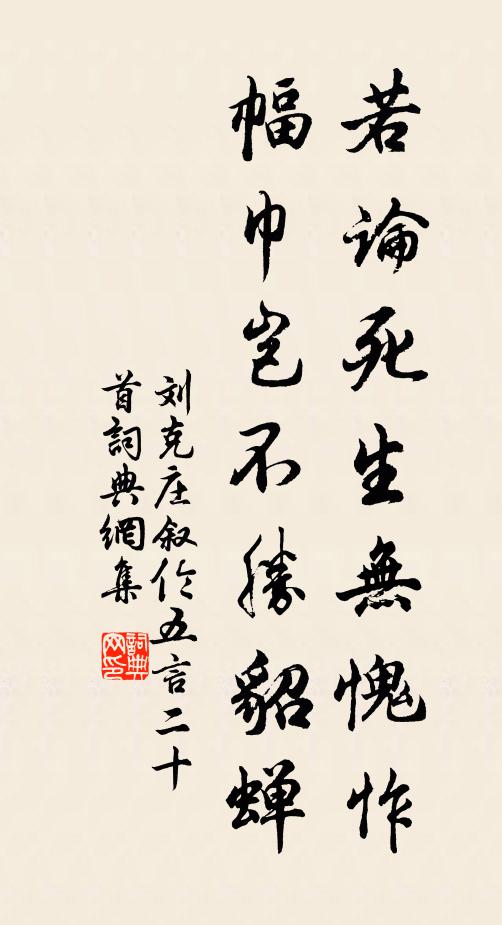 若論死生無愧怍
幅巾岂不勝貂蝉
刘克庄叙伦五言二十
首詞典網集
詞典網印